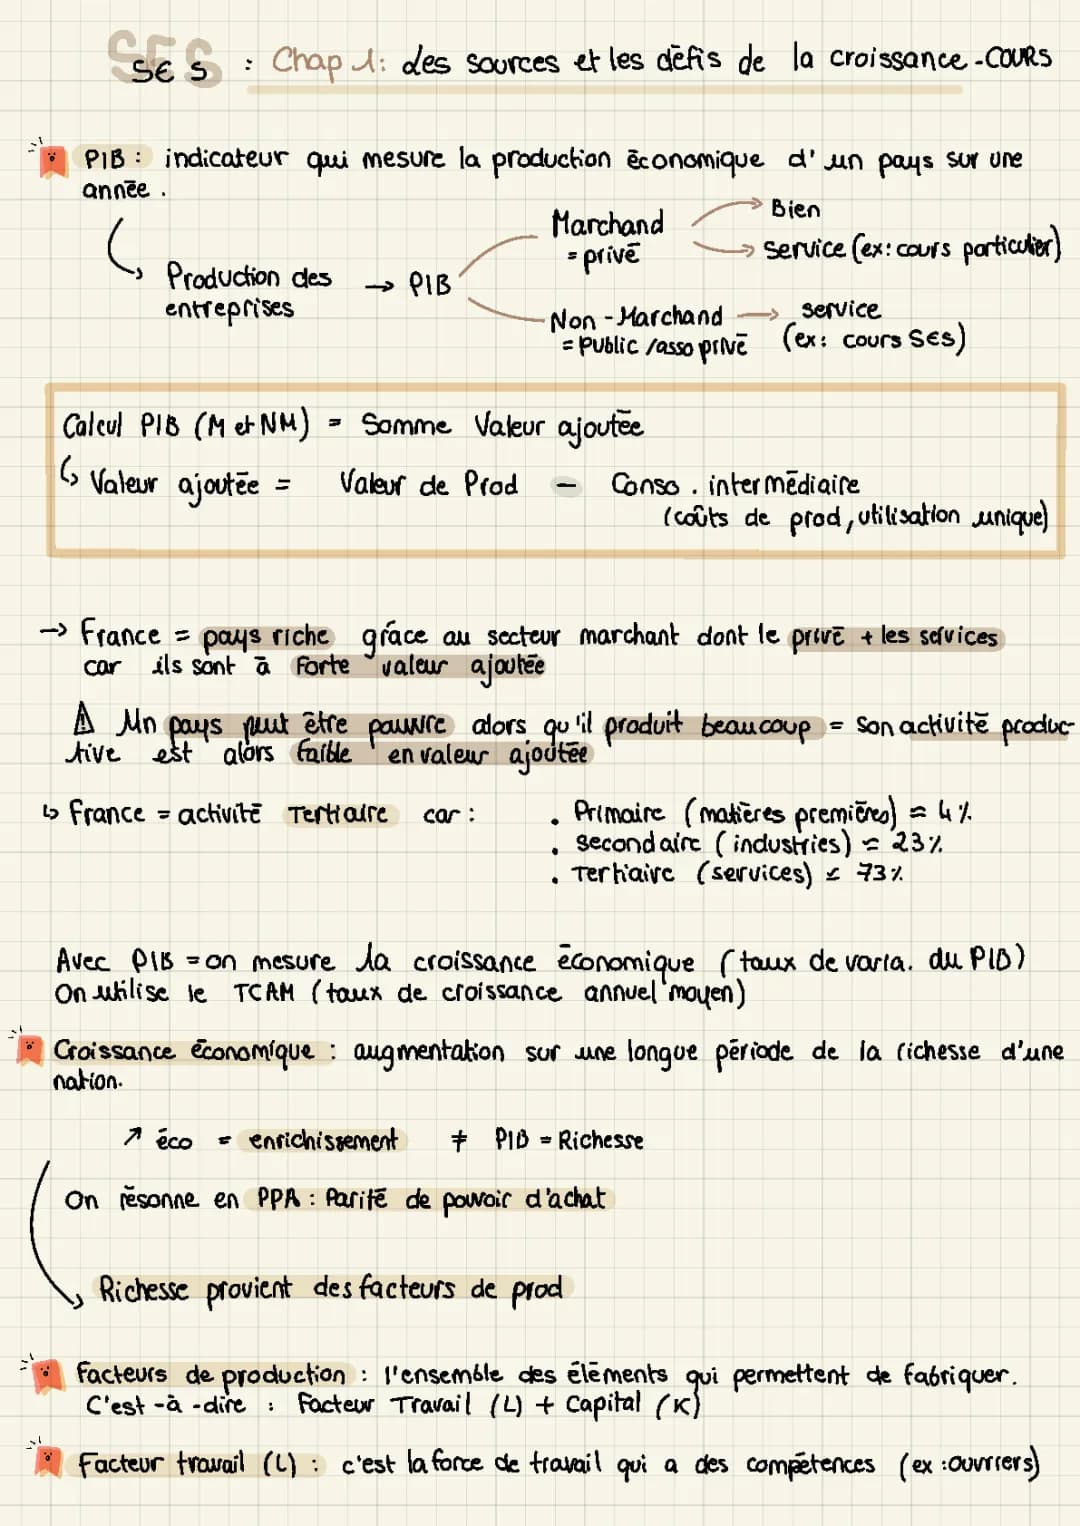 SES
SES : Chap 1: les sources et les défis de la croissance - COURS
PIB : indicateur qui mesure la production économique d'un pays sur une
année.
Production des entreprises → PIB
Marchand = privé
→ Bien
→ service (ex: cours particulier)
Non-Marchand = public /asso privé
→ service (ex: cours SES)
Calcul PIB (M et NM) = Somme Valeur ajoutée
↳ Valeur ajoutée = Valeur de Prod - Conso. intermédiaire
(coûts de prod, utilisation unique)
→ France = pays riche grâce au secteur marchant dont le privé + les services
car ils sont à forte valeur ajoutée
⚠ Un pays peut être pauvre alors qu'il produit beaucoup = son activité produc-
tive est alors faible en valeur ajoutée
↳ France = activité Tertiaire car :
. Primaire (matières premières) ≈ 4%
. secondaire (industries) ≈ 23%
. Tertiaire (services) ≈ 73%
Avec PIB = on mesure la croissance économique (taux de varia. du PIB)
On utilise le TCAM (taux de croissance annuel moyen)
Croissance économique : augmentation sur une longue période de la richesse d'une
nation.
↗ éco = enrichissement ≠ PIB = Richesse
On résonne en PPA : Parité de pouvoir d'achat
Richesse provient des facteurs de prod
Facteurs de production : l'ensemble des éléments qui permettent de fabriquer.
C'est-à-dire : Facteur Travail (L) + Capital (K)
Facteur travail (L) : c'est la force de travail qui a des compétences (ex : ouvriers)